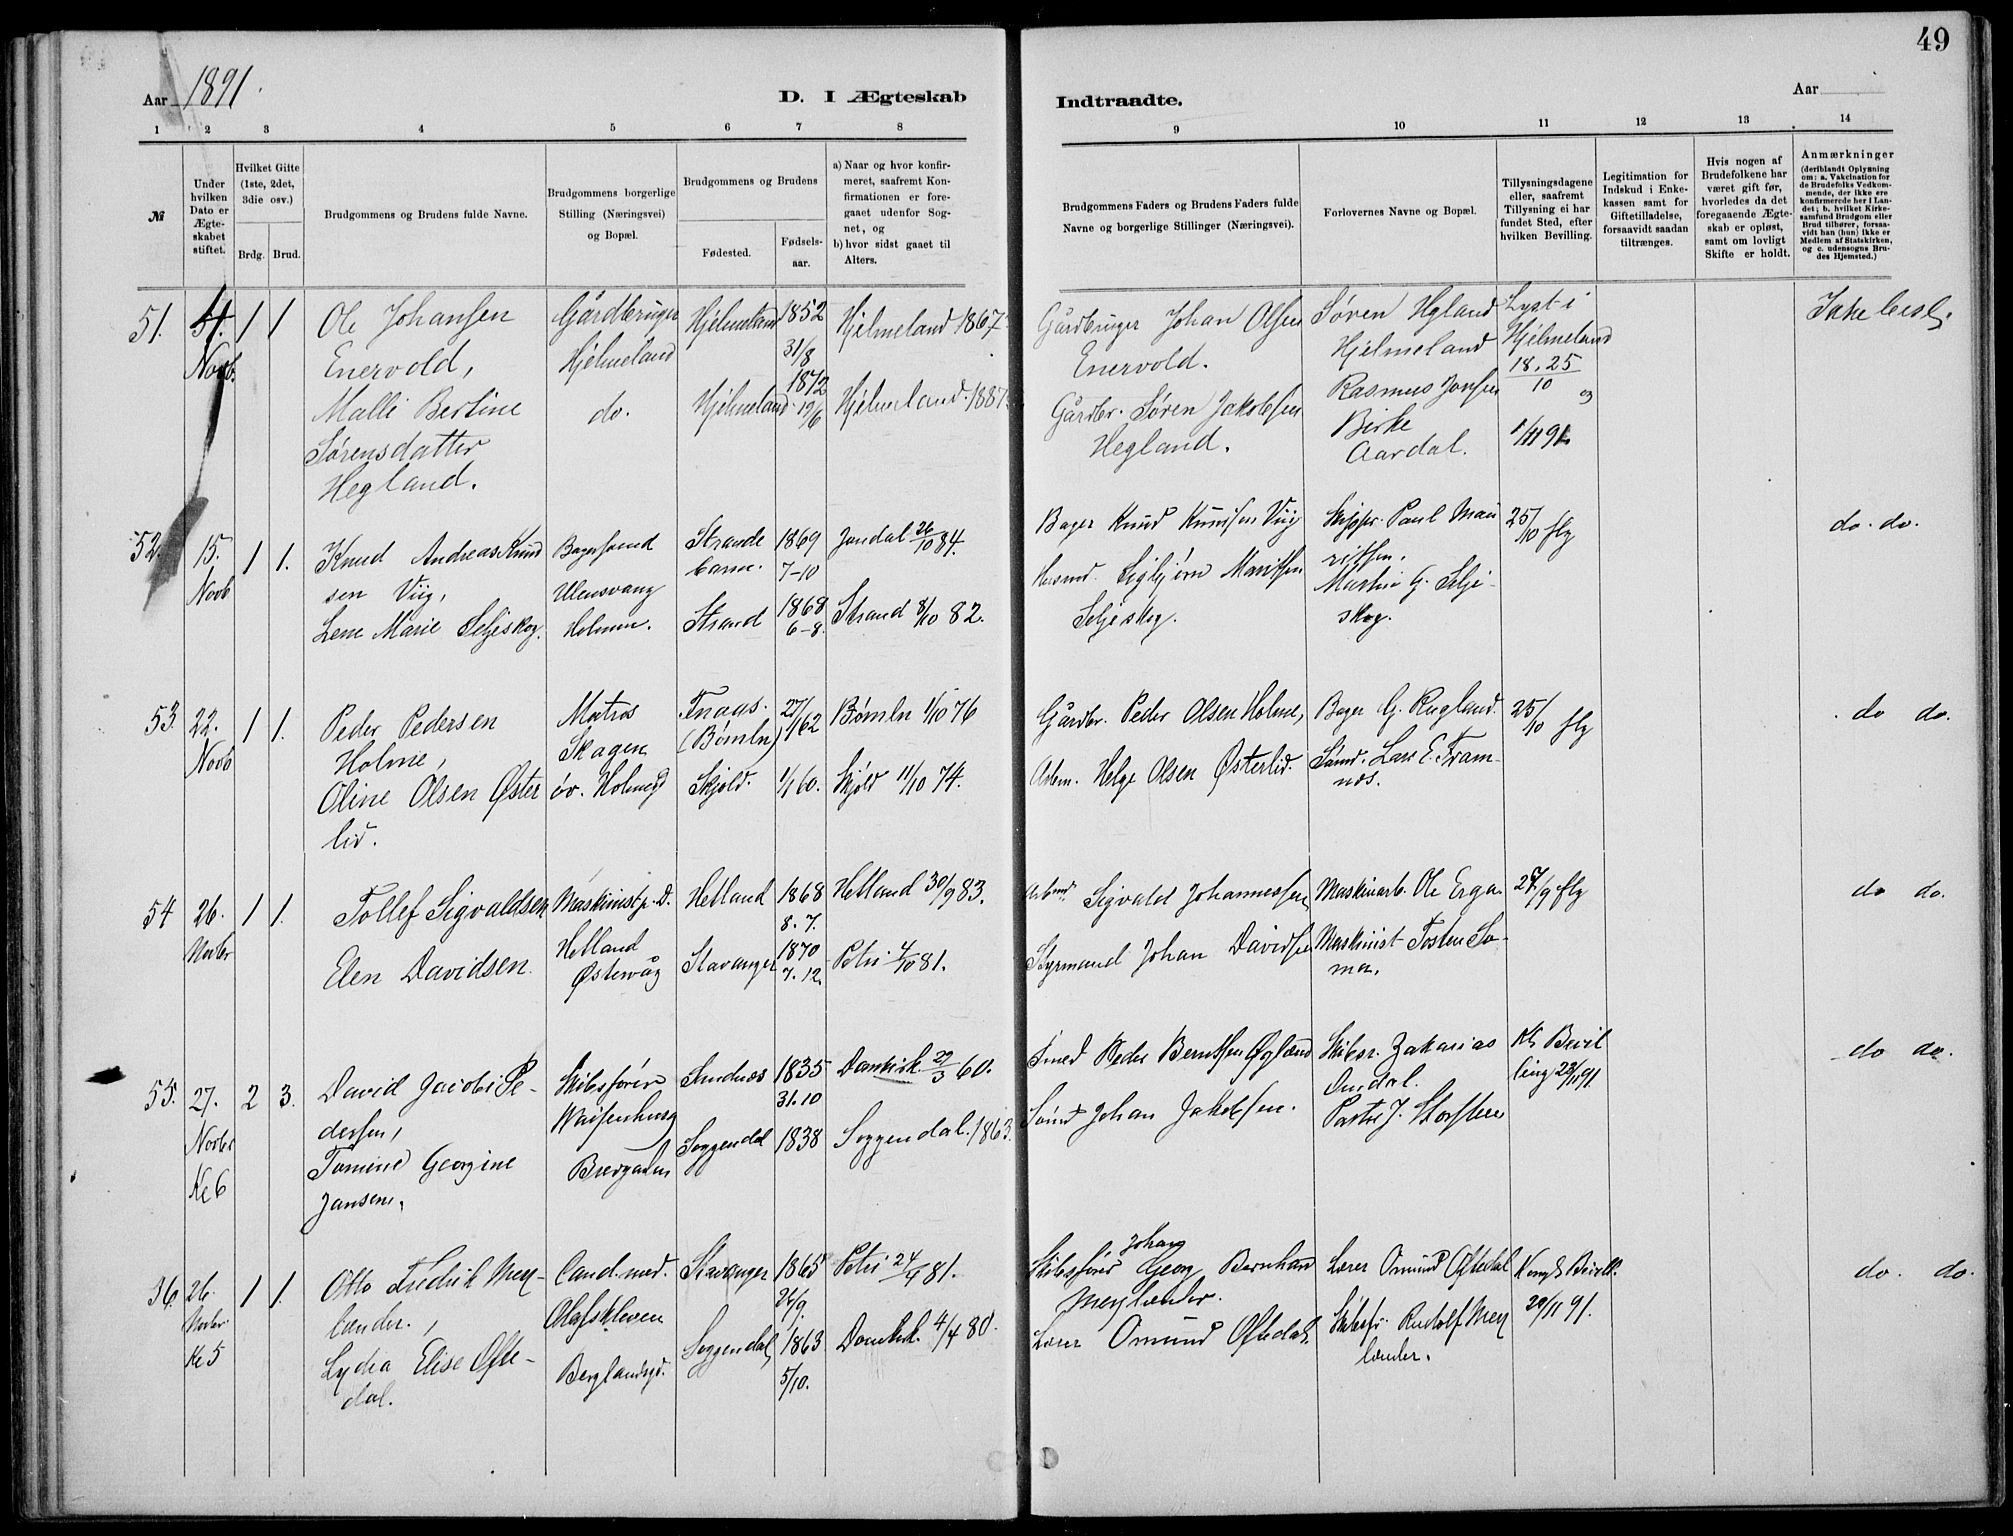 49
Aar 1891.
D. I Ægteskab
Indtraadte.
Aar
1 2 3 4 5 6 7 8
9 10 11 12 13 14
№
Under hvilken Dato er Ægteskabet stiftet.
Hvilket Gifte (1ste, 2det, 3die osv.)
Brdg. Brud.
Brudgommens og Brudens fulde Navne.
Brudgommens borgerlige Stilling (Næringsvei) og Bopæl.
Brudgommens og Brudens
Fødested.
Fødselsaar.
a) Naar og hvor konfirmeret, saafremt Konfirmationen er foregaaet udenfor Sognet, og
b) hvor sidst gaaet til Alters.
Brudgommens Faders og Brudens Faders fulde Navne og borgerlige Stillinger (Næringsvei).
Forlovernes Navne og Bopæl.
Tillysningsdagene eller, saafremt Tillysning ei har fundet Sted, efter hvilken Bevilling.
Legitimation for Indskud i Enkekassen samt for Giftetilladelse, forsaavidt saadan tiltrænges.
Hvis nogen af Brudefolkene har været gift før, hvorledes da det foregaaende Ægteskab er opløst, samt om lovligt Skifte er holdt.
Anmærkninger
(deriblandt Oplysning om: a. Vakcination for de Brudefolks Vedkommende, der ikke ere konfirmerede her i Landet; b. hvilket Kirkesamfund Brudgom eller Brud tilhører, forsaavidt han (hun) ikke er Medlem af Statskirken, og c. udensogns Brudes Hjemsted.)
51. Novb. 1 1
Ole Johansen
Enervold,
Malli Bertine
Sørensdatter
Hegland.
Gårdbruger
Hjelmeland
do.
Hjelmeland 1852 31/8
Hjelmeland 1872 19/6
Hjelmeland 1867
Hjelmeland 1887
Gårdbruger Johan Olsen
Enervold.
Gårdbr. Søren Jakobsen
Hegland.
Søren Hgland
Hjelmeland
Rasmus Jonsen
Birke
Aardal.
Lyst i
Hjelmeland
18. 25
10 og
1/11 91
Ikke besl.
52. 15. Novb 1 1.
Knud Andreas Knud
sen Viig,
Lene Marie Seljeskog.
Bagersvend
Ulensvang
Holmen.
Strande
barm. 1869 7-10
Strand 1868 6-8.
Jondal 26/10 84.
Strand 8/10 82.
Bager Knud Knudsen Viig
Husmd. Sigbjørn Mauritsen
Seljeskog.
Skipper. Paul Mau
ritsen.
Martin G. Selje-
skog.
25/10 flg
do. do.
53. 22. Novb 1 1.
Peder Pedersen
Holme,
Oline Olsen Øster
lid.
Matros
Skagen
øv. Holmegd
Finaas.
(Bømln) 27/1 62
Skjold. 1/1 60.
Bømln 1/10 76
Skjold 11/10 74.
Gårdbr. Peder Olsen Holme,
Arbm. Helge Olsen Østerlid.
Bager G. Rugland.
Sømd. Lars E. Fram-
nes.
25/10 flg
do do.
54 26. Novbr 1 1.
Tollef Sigvaldsen
Elen Davidsen.
Maskinist p. D.
Hetland
Østervåg
Hetland 1868 8. 7.
Stavanger 1870 7. 12.
Hetland 30/9 83.
Petri 4/10 81.
Arbmd. Sigvald Johannessen
Styrmand Johan Davidsen
Maskinarb. Ole Erga.
Maskinist Tosten So-
ma.
27/9 flg
do do.
55. 27. Novbr Kl 6 2 3.
David Jacobi Pe-
dersen,
Tomine Georgine
Jansene.
Skibsfører
Waisenhusg
Bredgaden
Sandnæs 1835 31.10
Soggendal 1838
Domkirk. 29/3 60.
Soggendal. 1863.
Smed Peder Berntsen Øgland
Sømd Johan Jakobsen.
Skibsr. Zakarias
Omdal.
Pastor J. Storsteen
Kl. Bevil
ling 23/11 91
do do.
56. 26. Novbr. Kl 5 1 1.
Otto Fredrik Mey-
lænder.,
Lydia Elise Ofte-
dal.
Cand. med.
Olafskleven
Berglandsgd.
Stavanger 1865 26/9.
Soggendal 1863 5/10.
Petri 24/4 81.
Domkirk. 4/4 80.
Skibsfører Johan Georg Bernhard
Meylænder.
Lærer Omund Oftedal.
Lærer Omund Oftedal
Skibsfr. Rudolf Mey
lænder.
Kongl. Bevill.
20/11 91.
do. do.